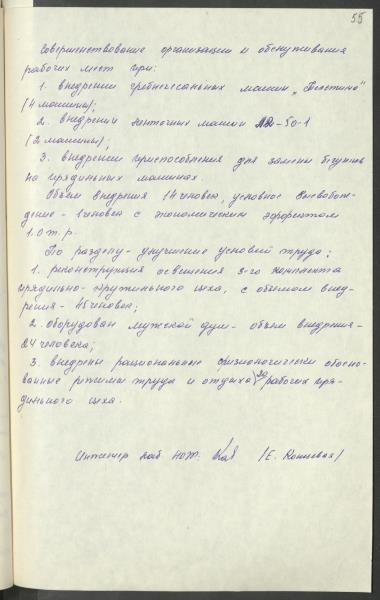 55
Совершенствование организации и обслуживания
рабочих мест при:
1. внедрении гребнечесальных машин „Текстима"
(4 машины);
2. внедрении ленточных машин -50-1
(2 машины);
3. внедрении приспособления для замены бегунков
на прядильных машинах.
Объем внедрения 14 человек, условное высвобож-
дение - 1 человек с экономическим эффектом
1.0 т.р.
По разделу - улучшение условий труда:
1. реконструкция освещения 3-го комплекта
прядильно-крутильного цеха, с объемом внед-
рения - 45 человек;
2. оборудован мужской душ - объем внедрения -
24 человека;
3. внедрены рациональные физиологически обосно-
ванные режимы труда и отдыха 30 рабочих пря-
дильного цеха.
Инженер лаб. НОТ. (Е.